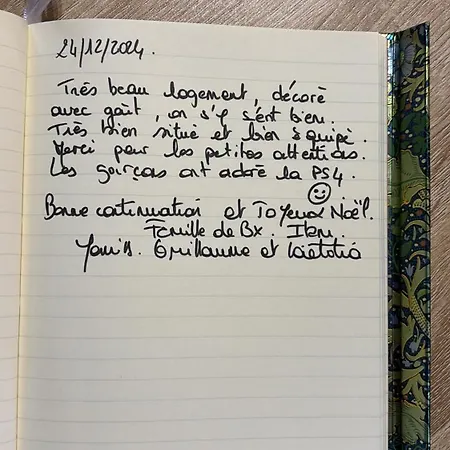 24/12/2024.
Très beau logement, décoré
avec goût, on s'y sent bien.
Très bien situé et bien équipé.
Merci pour les petites attentions.
Les garçons ont adoré la PS4.
Bonne continuation et Joyeux Noël.
Famille de Bx.
Yanis. Guillaume et Laetitia